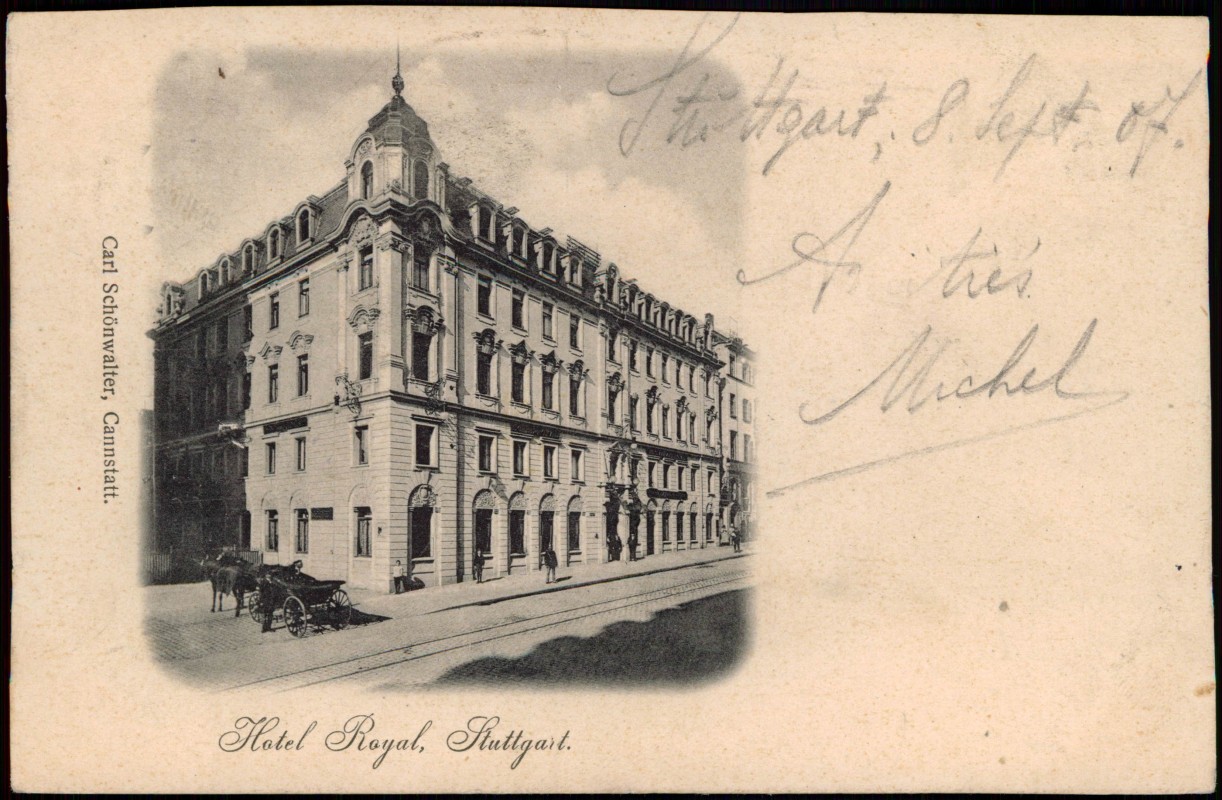 Stuttgart, 8. Sept. 07.
Michel
Carl Schönwalter, Cannstatt.
Hotel Royal, Stuttgart.